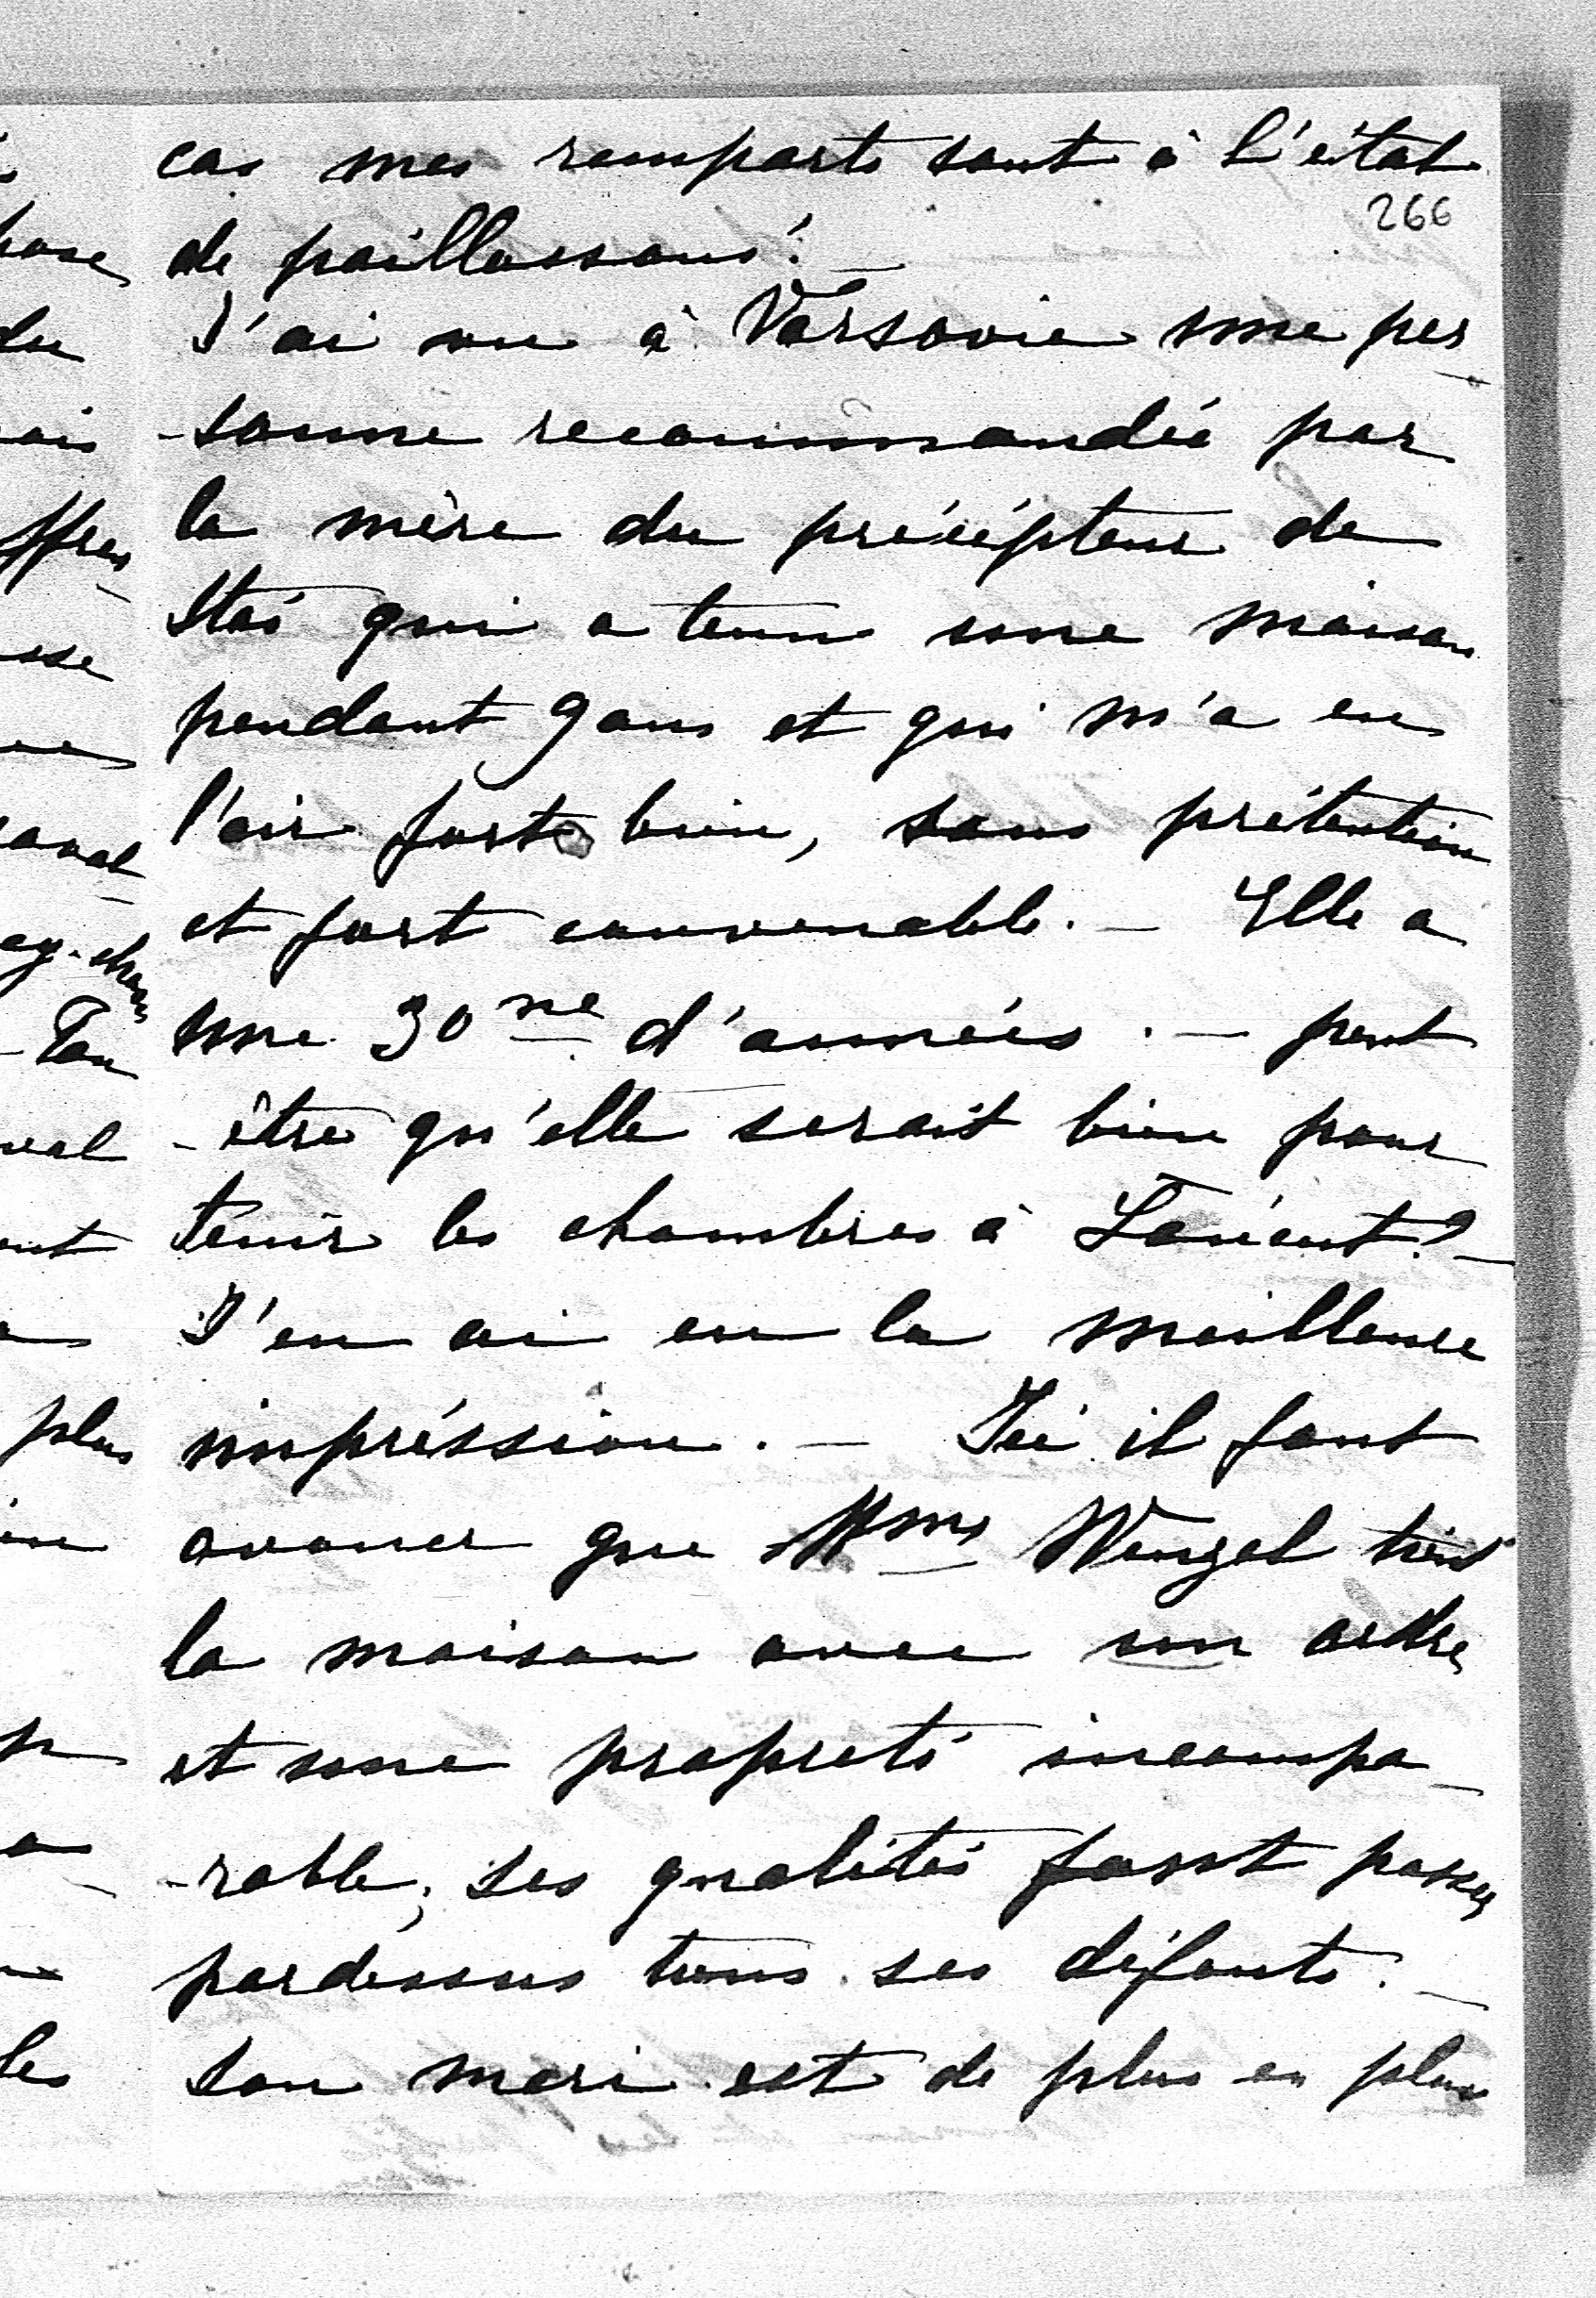 cas mes remparts sont à l'état
266
de paillassons! —
J'ai vu à Varsovie une per
-sonne recommandée par
la mère du précépteur de
Staś qui a tenu une maison
pendant 9 ans et qui m'a eu
l'air fort bien, sans prétention
et fort convenable. — Elle a
une 30ne d'années. — peut
-être qu'elle serait bien pour
tenir les chambres à Łańcut? —
J'en ai eu la meilleure
impréssion. — Ici il faut
avouer que Mme Wenzel tient
la maison avec un ordre
et une propreté incompa-
-rable, ses qualités font passer
pardessus tous ses défauts. —
son mari est de plus en plus